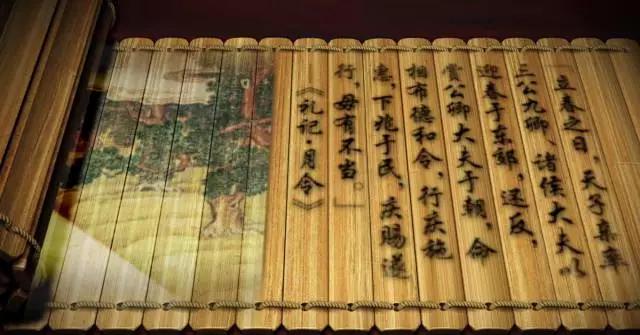 「立春之日，天子亲率
三公九卿、诸侯大夫以
迎春于东郊，还反，
赏公卿大夫于朝，命
相布德和令，行庆施
惠，下兆于民，庆赐遂
行，毋有不当。」
《礼记·月令》